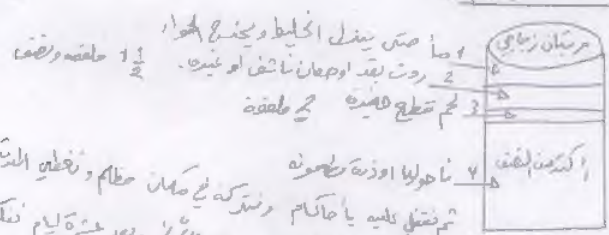 مرتبان زجاجي
1 ماء حتى ينزل الخليط ويخرج الهواء
2 روث بقر او حصان ناشف او غيره. 1 1/2 ملعقة ونصف
3 لحم قطع صغيره 2 ملعقة
اكثر من النصف
4 او ذرة مطحونه
ثم نقفل عليه بأحكام ونتركه في مكان مظلم ونغطي
عشرة ايام